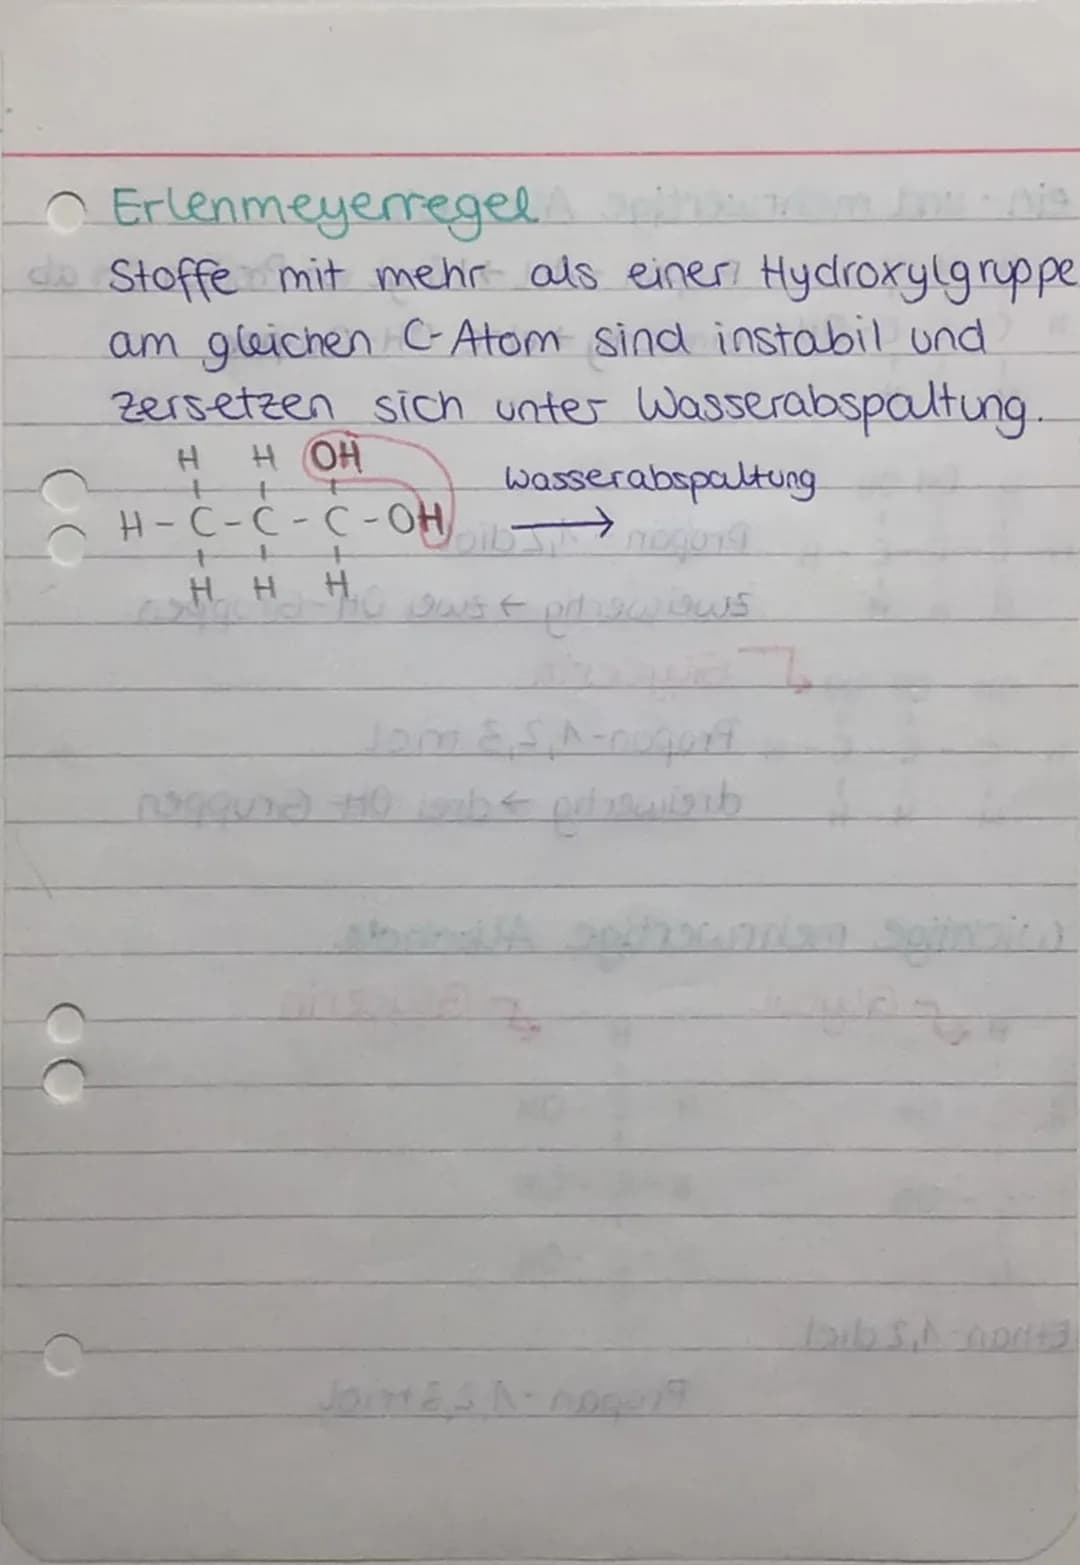 Erlenmeyerregel
Stoffe mit mehr als einer Hydroxylgruppe
am gleichen C-Atom sind instabil und
zersetzen sich unter Wasserabspaltung.
H H OH
H-C-C-C-OH
H H H
Wasserabspaltung
→